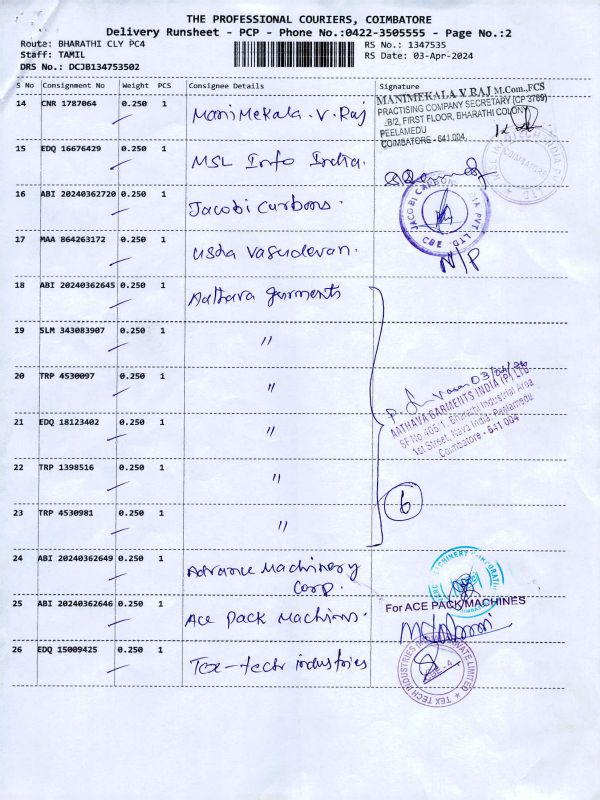 THE PROFESSIONAL COURIERS, COIMBATORE
Delivery Runsheet - PCP - Phone No.:0422-3505555 - Page No.:2
Route: BHARATHI CLY PC4
RS No.: 1347535
Staff: TAMIL
RS Date: 03-Apr-2024
DRS No.: DCJB134753502
S No Consignment No Weight PCS Consignee Details Signature
14 CNR 1787064 0.250 1 ManiMekala. V. Raj
MANIMEKALA V RAJ M.Com.,FCS
PRACTISING COMPANY SECRETARY (CP 3769)
B/2, FIRST FLOOR, BHARATHI COLONY
PEELAMEDU
COIMBATORE - 641 004.
15 EDQ 16676429 0.250 1 MSL Info India.
COIMBATORE
16 ABI 20240362720 0.250 1 Jacobi Carbons.
JACOBI CARBONS INDIA PVT. LTD.
CBE
17 MAA 864263172 0.250 1 Usha Vasudevan.
N/P
18 ABI 20240362645 0.250 1 Aathava garments
19 SLM 343083907 0.250 1 "
20 TRP 4530097 0.250 1 "
03/04/24
AATHAVA GARMENTS INDIA (P) LTD
SF No 405/1, Bharathi Industrial Area
1st Street, Nava India, Peelamedu
Coimbatore - 641 004
21 EDQ 18123402 0.250 1 "
22 TRP 1398516 0.250 1 "
6
23 TRP 4530981 0.250 1 "
24 ABI 20240362649 0.250 1 Advance Machinery
Corp.
MACHINERY CORPORATION
25 ABI 20240362646 0.250 1 Ace Pack Machines.
For ACE PACK MACHINES
26 EDQ 15009425 0.250 1 Tex-tech industries
TEX TECH INDUSTRIES PRIVATE LIMITED
CBE-4